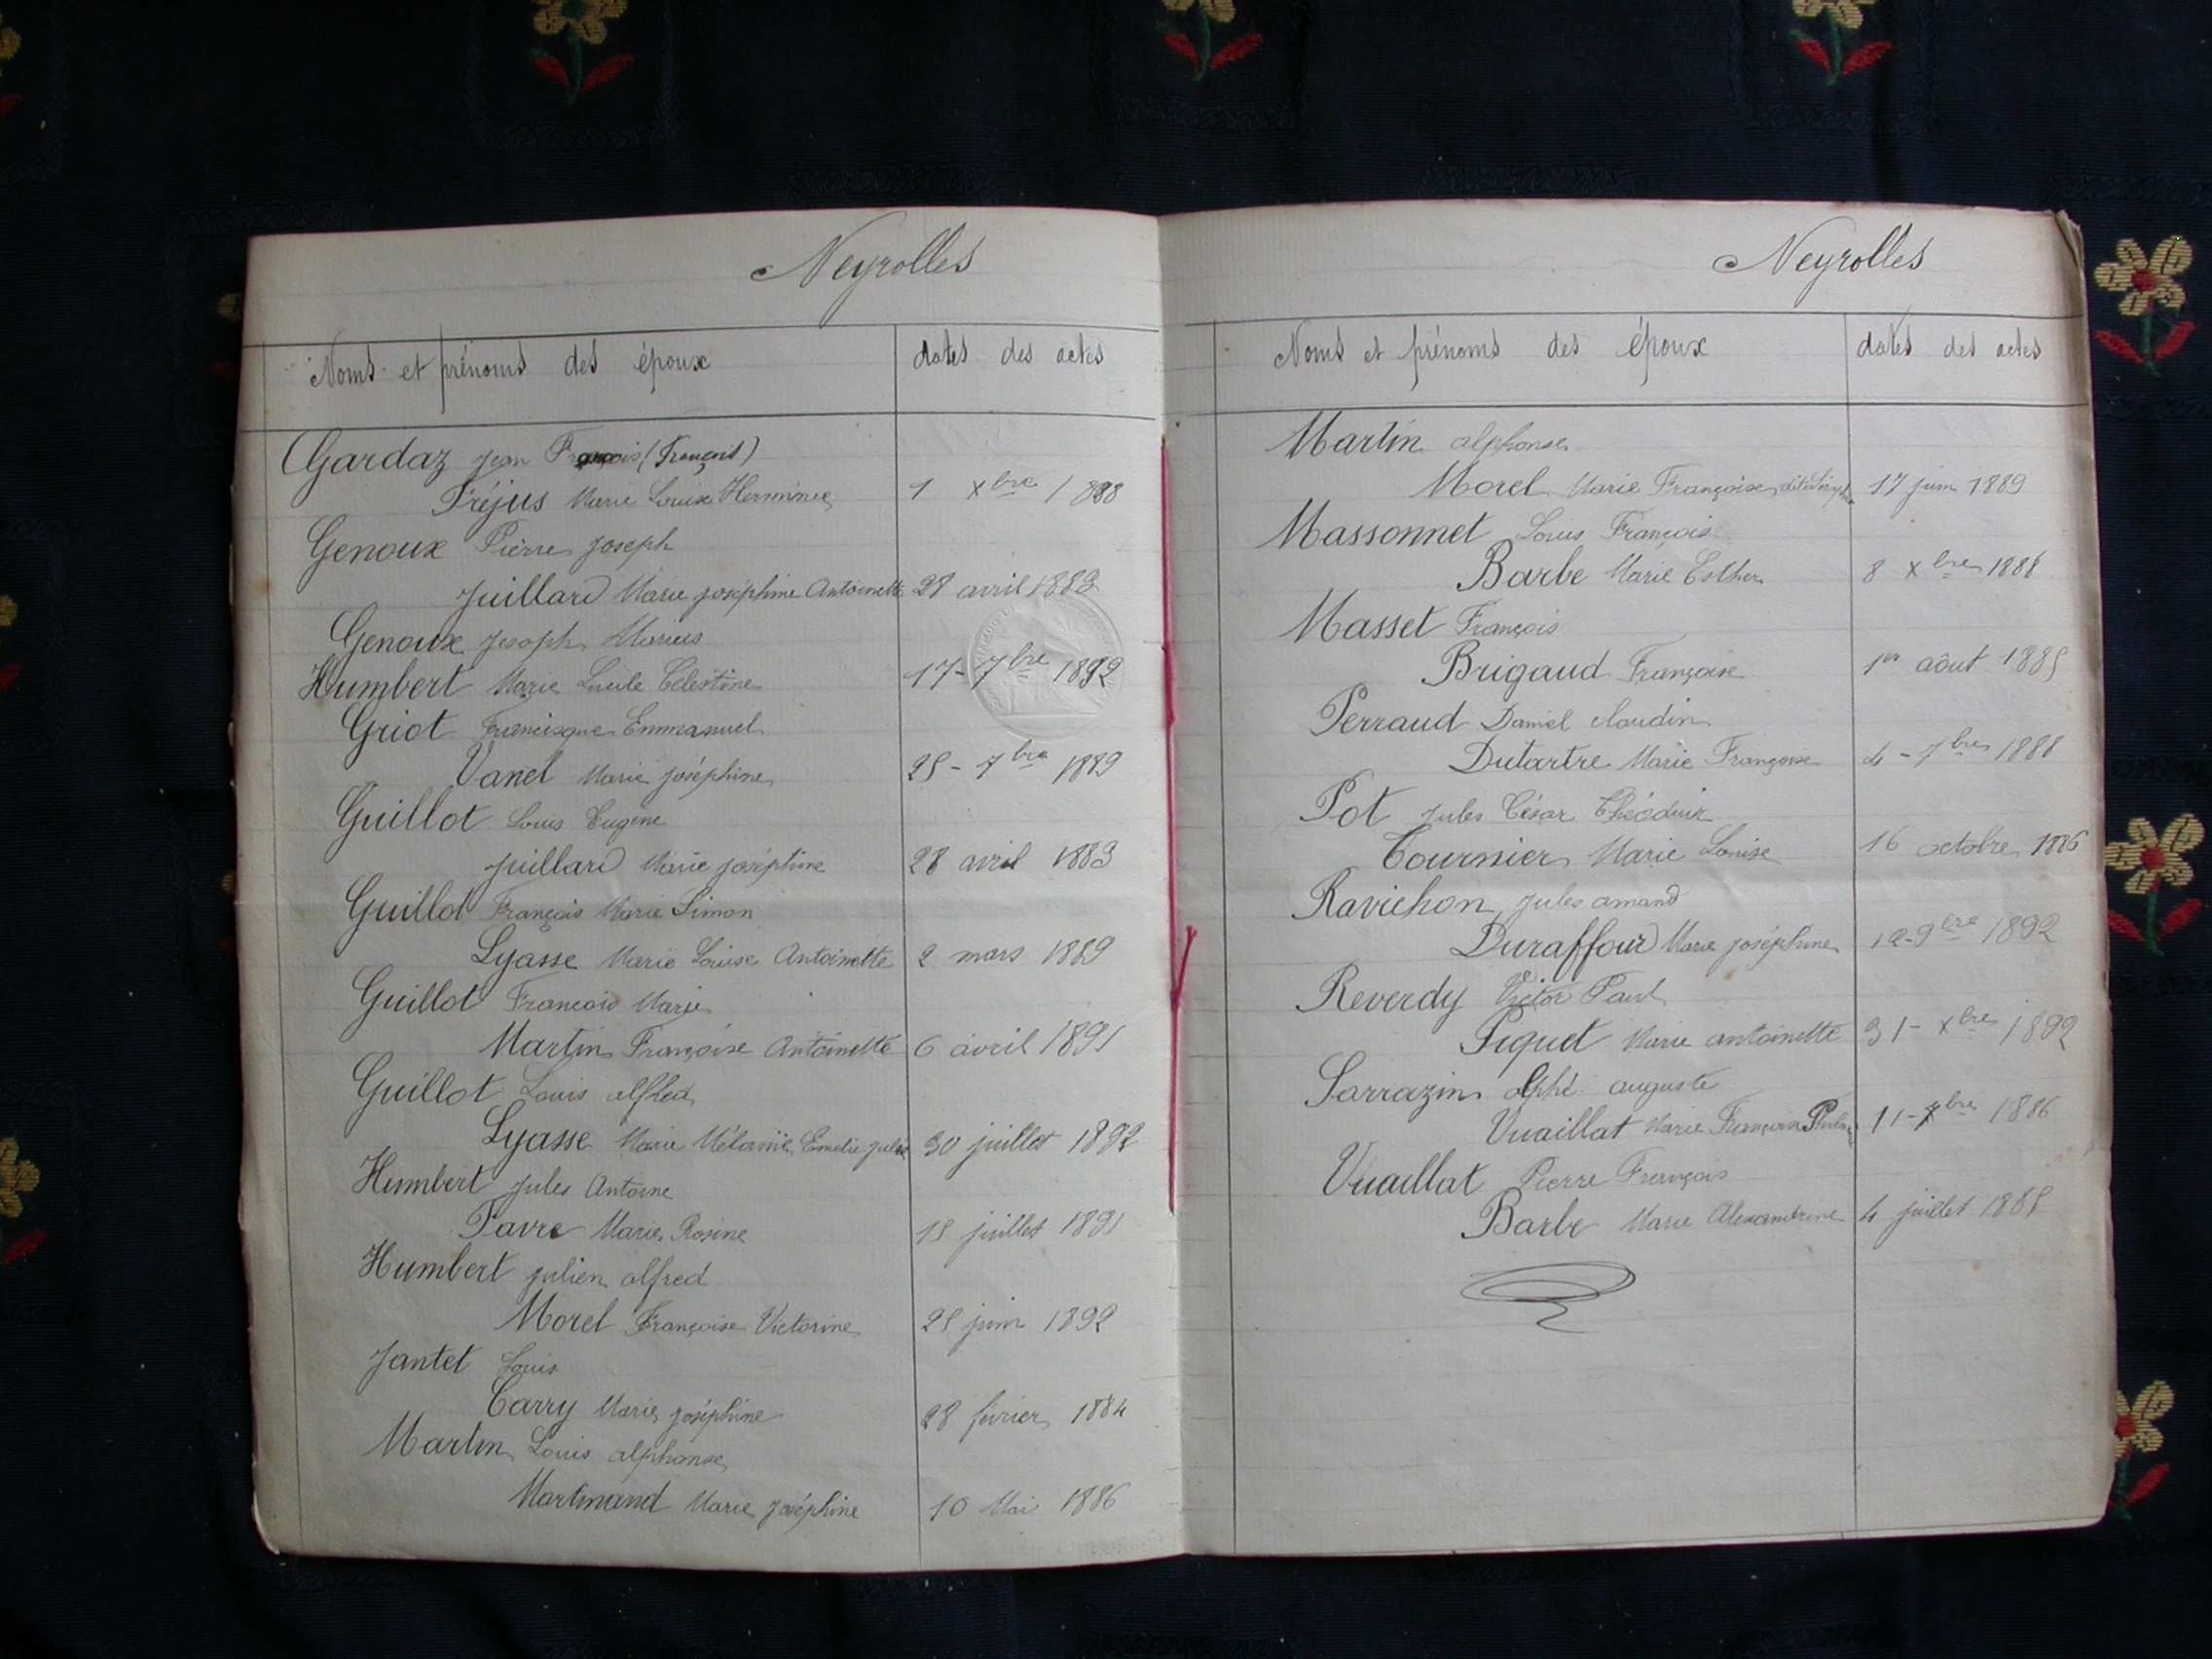 Neyrolles
Noms et prénoms des époux dates des actes
Gardaz Jean François (François)
Fréjus Marie Louise Herminie 1 Xbre 1888
Genoux Pierre Joseph
Juillard Marie Joséphine Antoinette 28 avril 1883
Genoux Joseph Marius
Humbert Marie Lucile Célestine 17-7bre 1892
Griot Francisque Emmanuel
Vanel Marie Joséphine 25-7bre 1889
Guillot Louis Eugène
Juillard Marie Joséphine 28 avril 1883
Guillot François Marie Simon
Lyasse Marie Louise Antoinette 2 mars 1889
Guillot François Marie
Martin Françoise Antoinette 6 avril 1891
Guillot Louis alfred
Lyasse Marie Mélanie Emélie Julie 30 juillet 1892
Humbert Jules Antoine
Favre Marie Rosine 18 juillet 1891
Humbert Julien alfred
Morel Françoise Victorine 25 juin 1892
Jantet Louis
Carry Marie Joséphine 28 février 1884
Martin Louis alphonse
Martinand Marie Joséphine 10 Mai 1886
Neyrolles
Noms et prénoms des époux dates des actes
Martin alphonse
Morel Marie Françoise 17 juin 1889
Massonnet Louis François
Barbe Marie Esther 8 Xbre 1888
Masset François
Brigaud Françoise 1er aôut 1885
Perraud Daniel claudin
Dutartre Marie Françoise 4-7bre 1888
Pot Jules César
Tournier Marie Louise 16 octobre 1886
Ravichon Jules amand
Duraffour Marie Joséphine 12-9bre 1892
Reverdy Victor Paul
Piquet Marie antoinette 31-Xbre 1892
Sarrazin auguste
Vuaillat Marie Françoise 11-Xbre 1886
Vuaillat Pierre François
Barbe Marie Alexandrine 4 juillet 1885